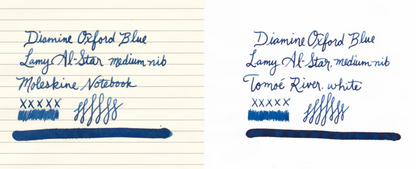 Diamine Oxford Blue
Lamy Al-Star medium nib
Moleskine Notebook
xxxxx
Diamine Oxford Blue
Lamy Al-Star, medium nib
Tomoé River, white
xxxxx